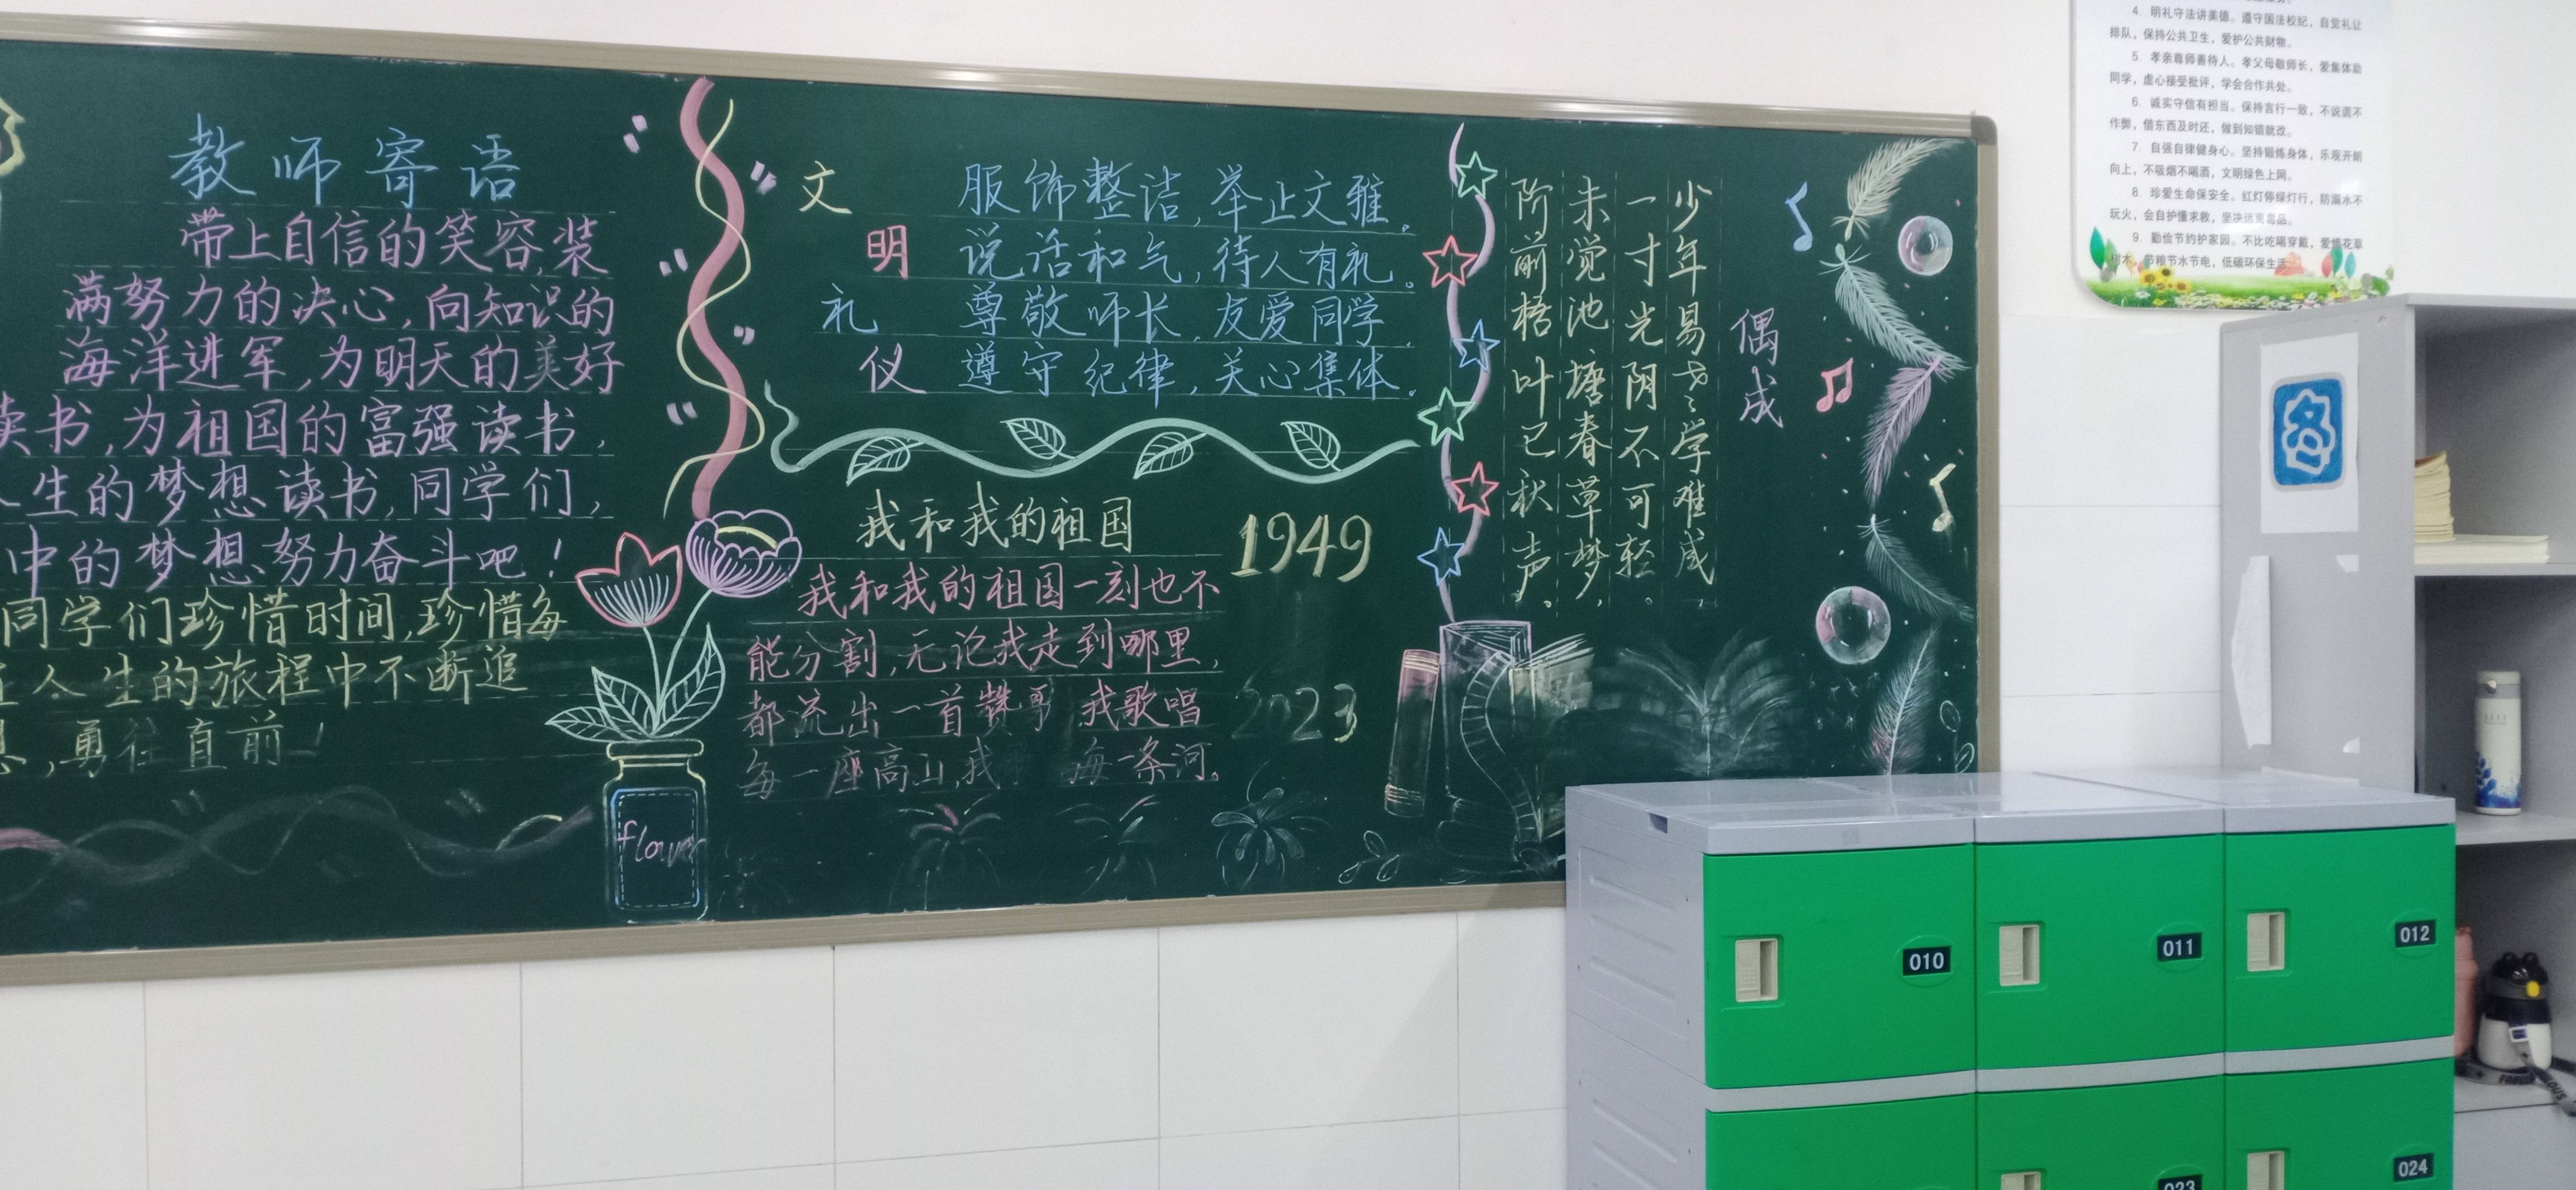 教师寄语
带上自信的笑容,装
满努力的决心,向知识的
海洋进军,为明天的美好
读书,为祖国的富强读书,
人生的梦想读书,同学们,
中的梦想努力奋斗吧!
同学们珍惜时间,珍惜每
人生的旅程中不断追
,勇往直前!
flower
文
明
礼
仪
服饰整洁,举止文雅。
说话和气,待人有礼。
尊敬师长,友爱同学,
遵守纪律,关心集体。
我和我的祖国
1949
我和我的祖国一刻也不
能分割,无论我走到哪里,
都流出一首赞歌 我歌唱
每一座高山,我 每一条河。
2023
偶成
少年易老学难成,
一寸光阴不可轻。
未觉池塘春草梦,
阶前梧叶已秋声。
4. 明礼守法讲美德。遵守国法校纪，自觉礼让
排队，保持公共卫生，爱护公共财物。
5. 孝亲尊师善待人。孝父母敬师长，爱集体助
同学，虚心接受批评，学会合作共处。
6. 诚实守信有担当。保持言行一致，不说谎不
作弊，借东西及时还，做到知错就改。
7. 自强自律健身心。坚持锻炼身体，乐观开朗
向上，不吸烟不喝酒，文明绿色上网。
8. 珍爱生命保安全。红灯停绿灯行，防溺水不
玩火，会自护懂求救，坚决远离毒品。
9. 勤俭节约护家园。不比吃喝穿戴，爱惜花草
树木，节粮节水节电，低碳环保生活
010
011
012
023
024